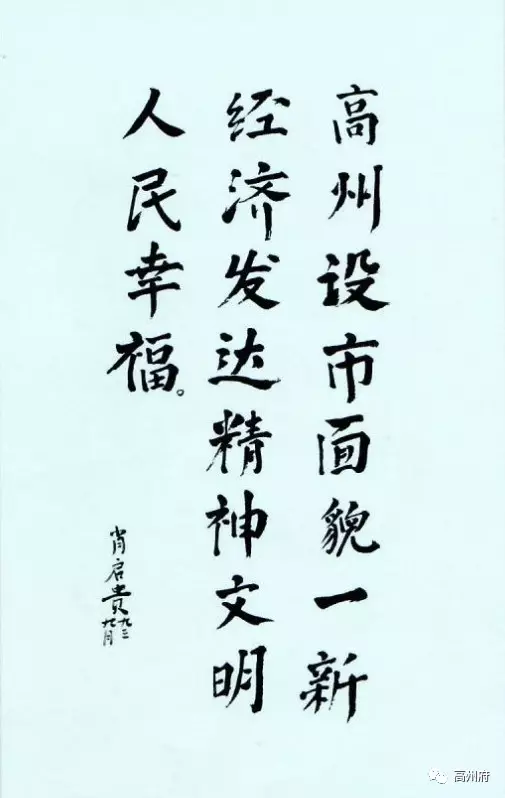 高州设市面貌一新
经济发达精神文明
人民幸福。
肖启贵九三
九月
高州府